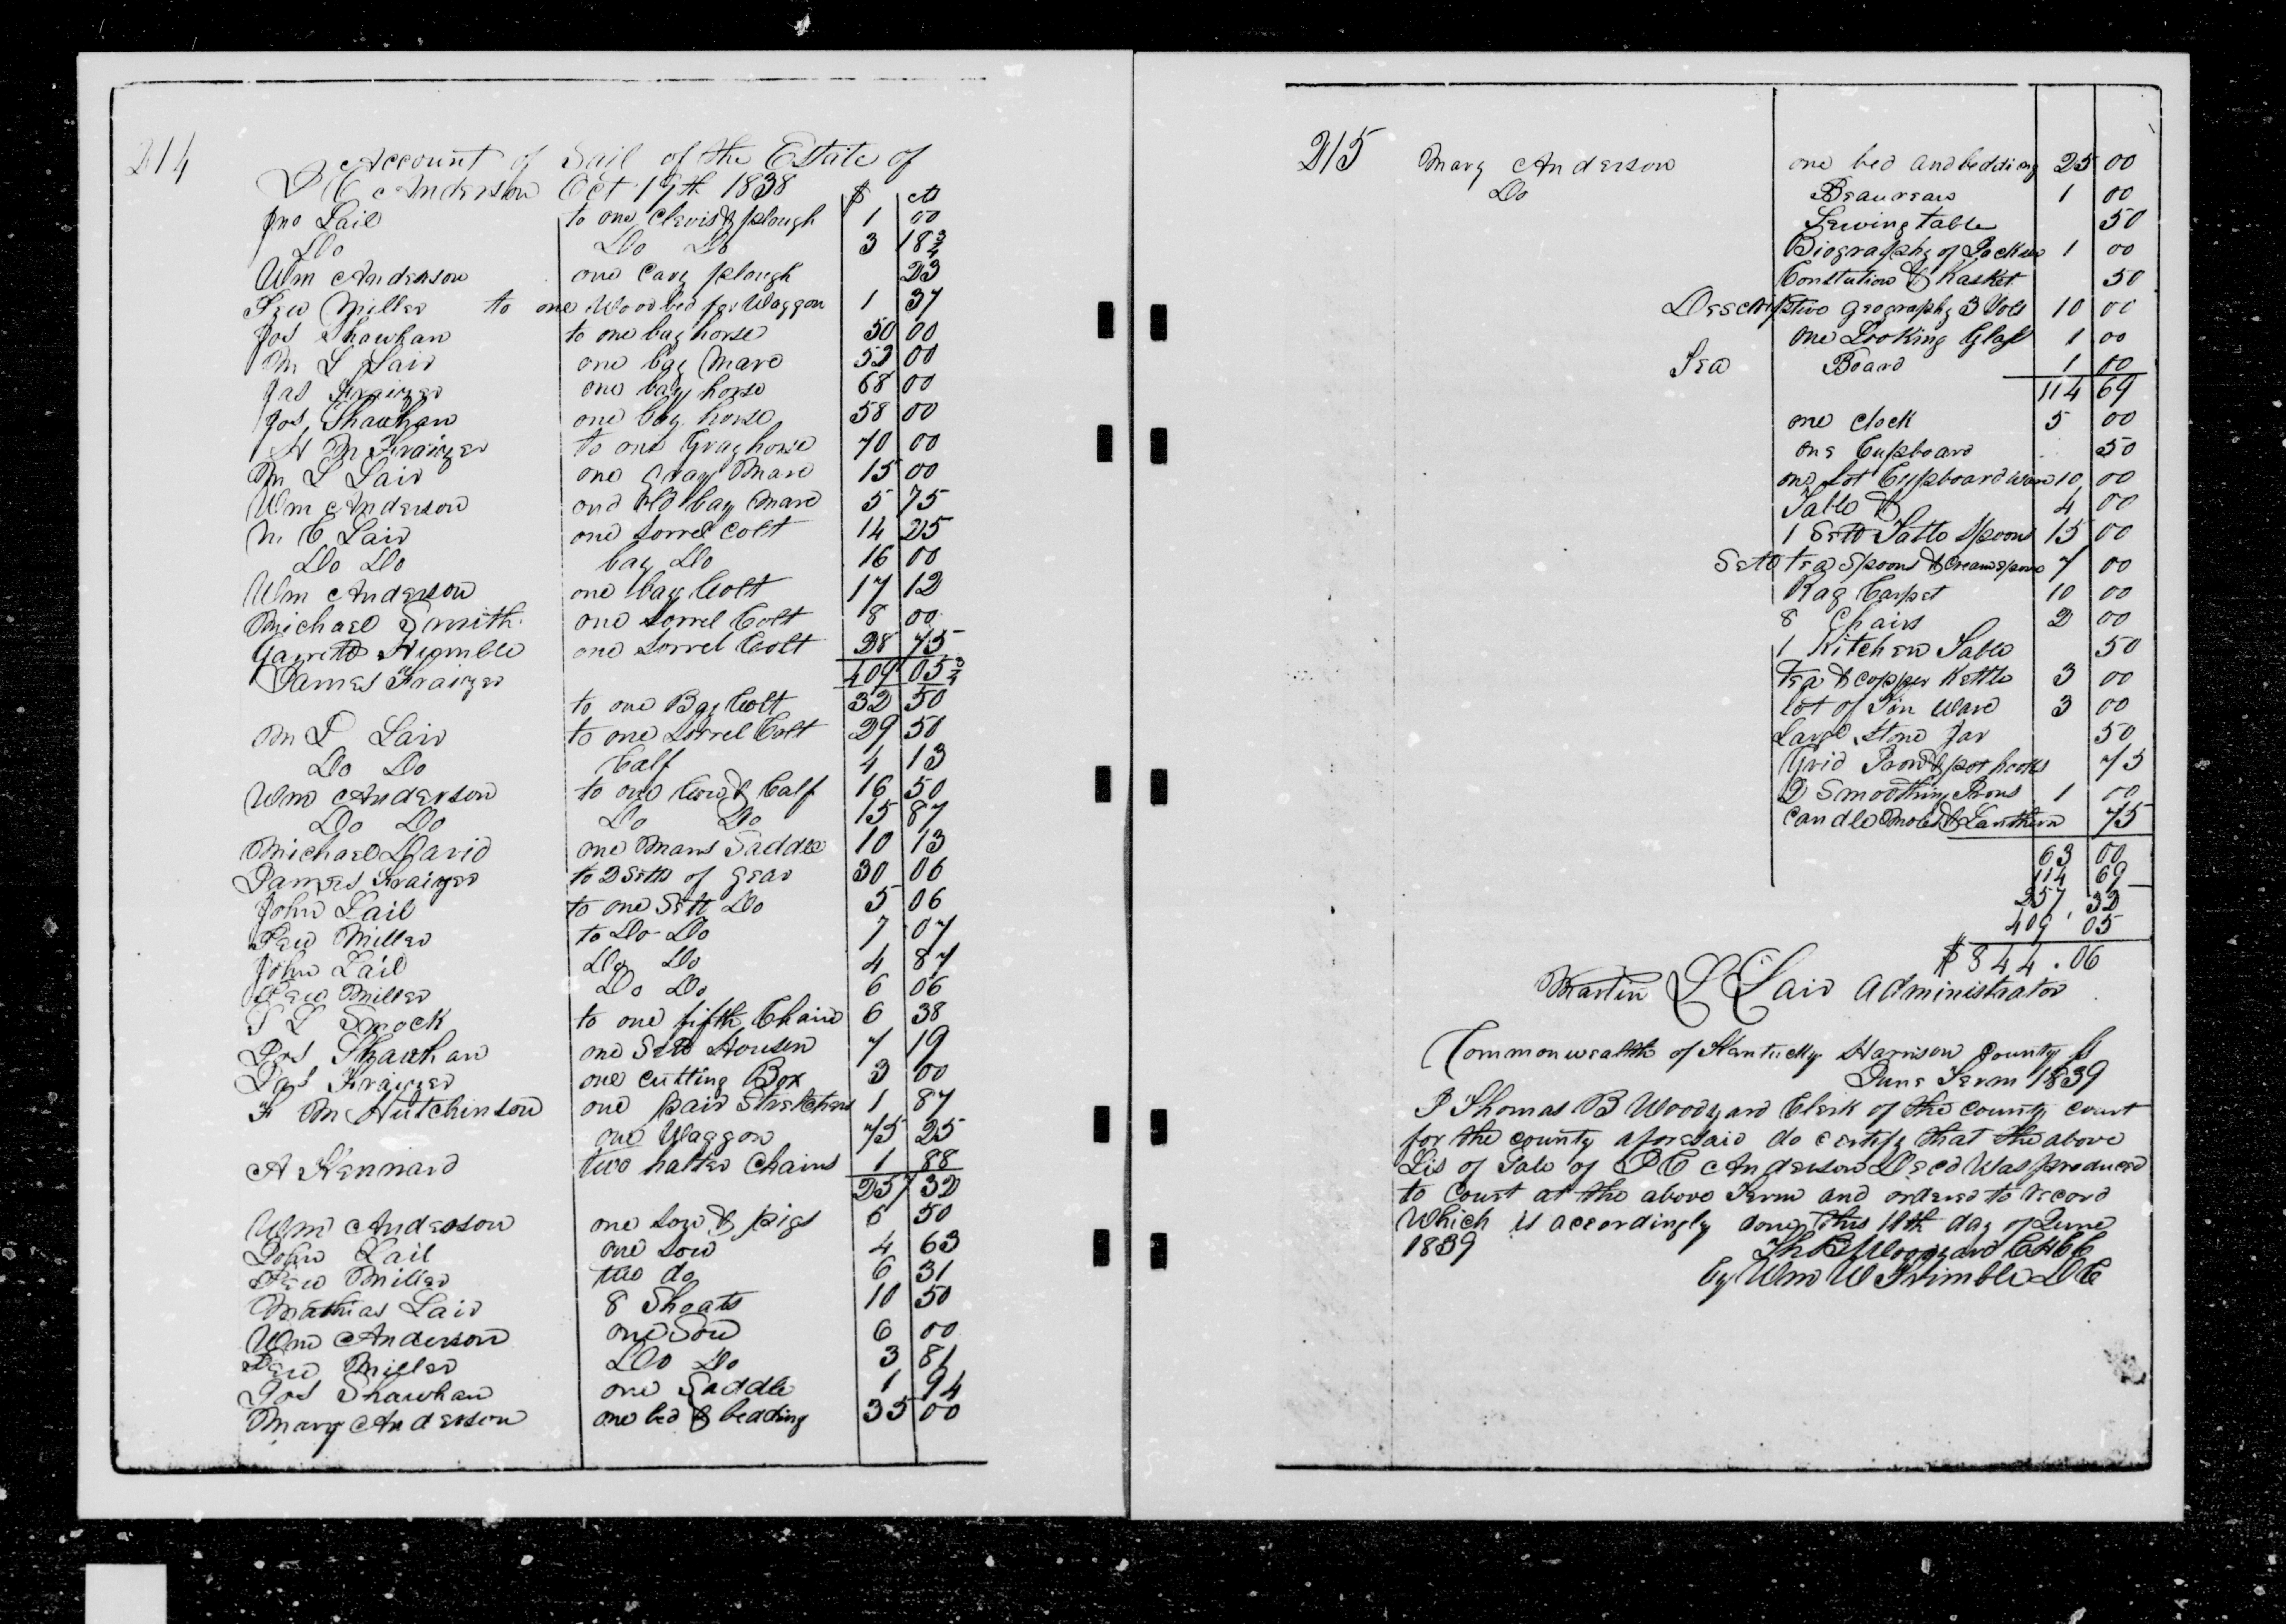 214
Account of Sail of the Estate of
P C Anderson Oct 19th 1838 $ cts
Jno Lail to one Clevis & plough 1 00
Do Do Do 3 18¾
Wm Anderson one Cary plough 23
Lew Miller to one Wood bed for Waggon 1 37
Jos Shawhan to one bay horse 50 00
M L Lair one bay Mare 52 00
Jas Fraizer one bay horse 68 00
Jos Shawhan one bay horse 58 00
H M Fraizer to one Gray horse 70 00
M L Lair one Gray Mare 15 00
Wm Anderson one Old bay Mare 5 75
M C Lair one Sorrel Colt 14 25
Do Do bay Do 16 00
Wm Anderson one bay Colt 17 12
Michael Smith one Sorrel Colt 8 00
Garrett Humble one Sorrel Colt 28 75
409 05¾
James Fraizer
to one Bay Colt 32 50
M L Lair to one Sorrel Colt 29 50
Do Do Calf 4 13
Wm Anderson to one Cow & Calf 16 50
Do Do Do Do 15 87
Michael David one Mans Saddle 10 13
James Fraizer to 2 Setts of Gear 30 06
John Lail to one Sett Do 5 06
Lew Miller to Do Do 7 07
John Lail Do Do 4 87
Lew Miller Do Do 6 06
T L Smock to one fifth Chain 6 38
Jos Shawhan one Sett Housen 7 19
Jas Fraizer one Cutting Box 3 00
F M Hutchinson one pair Stretchers 1 87
one Waggon 75 25
A Kennard two halter Chains 1 88
257 32
Wm Anderson one Sow & pigs 6 50
John Lail one Sow 4 63
Lew Miller two do 6 31
Mathias Lair 8 Shoats 10 50
Wm Anderson one Sow 6 00
Lew Miller Do Do 3 81
Jos Shawhan one Saddle 1 94
Mary Anderson one bed & bedding 35 00
215
Mary Anderson one bed and bedding 25 00
Do Beaureau 1 00
Sewing table 50
Biography of 1 00
Constution & Kasket 50
Descriptive Geography 3 Vols 10 00
one Looking Glass 1 00
Tea Board 1 00
114 69
one Clock 5 00
one Cupboard 50
one Lot Cupboard ware 10 00
Table & 4 00
1 Sett Table Spoons 15 00
Sett tea Spoons & Cream spoon 7 00
Rag Carpet 10 00
8 Chairs 2 00
1 Kitchen Table 50
tea & copper Kettle 3 00
lot of Tin Ware 3 00
Large Stone Jar 50
Grid Iron & pot hooks 75
2 Smoothing Irons 1 00
Candle Moles & Lanthern 75
63 00
114 69
257 32
409 05
$844.06
Martin L Lair Administrator
Commonwealth of Kentucky Harrison County Ss
June Term 1839
I Thomas B Woodyard Clerk of the County Court
for the county aforesaid do certify that the above
Lis of Sale of P C Anderson Decd Was produced
to Court at the above Term and ordered to record
Which is accordingly done This 10th day of June
1839 Th B Woodyard CHCC
by Wm W Trimble DC